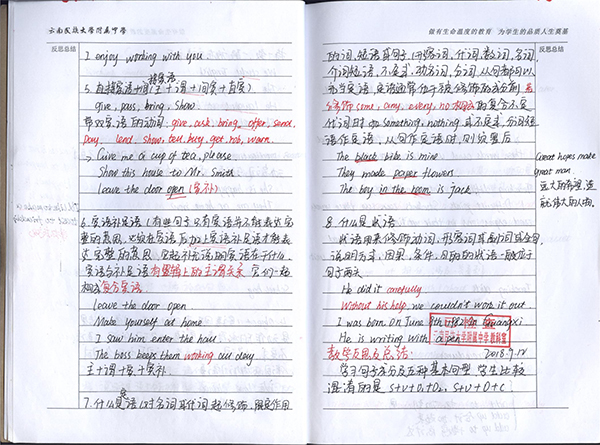 云南民族大学附属中学
反思总结
I enjoy working with you
5. 直接宾语+间接宾语(主+谓+间宾+直宾)
give, pass, bring, show
带双宾语的动词: give, ask, bring, offer, send,
pay, lend, show, tell, buy, get, rob, warn.
> Give me a cup of tea, please
Show this house to Mr. Smith
leave the door open (宾补)
6. 宾语补足语 (有些句子只有宾语并不能表达完
整的意思, 必须在宾语后加上宾语补足语才能表
达完整的意思
宾语与补足语有逻辑上的主谓关系 它们一起
构成复合宾语
leave the door open
Make yourself at home
I saw him enter the hall
The boss keeps them working all day
主+谓+宾+宾补
7. 什么是定语 (对名词或代词起修饰, 限定作用
做有生命温度的教育 为学生的品质人生奠基
反思总结
的词, 短语或句子 (形容词, 代词, 数词, 名词,
介词短语, 不定式, 动名词, 分词, 从句都可以
充当定语, 定语通常位于被修饰的成分前 若
修饰 some, any, every, no 构成的复合不定
代词时 如 something, nothing 或不定式, 分词短
语作定语, 从句作定语时, 则须置后
The black bike is mine
They made paper flowers
The boy in the room is Jack
Great hopes make
great man.
远大的希望, 造
就伟大的人物.
8. 什么是状语
状语用来修饰动词, 形容词或副词或全句,
说明方式, 因果, 条件, 目的的状语一般位于
句子两头
He did it carefully
Without his help we couldn't work it out
I was born on June 9th 1982 in Guangxi
He is writing with a pen
云南民族大学附属中学教科室
教学反思及总结 2018.9.12
学习句子成分及五种基本句型 学生比较
混淆的是 S+V+O1+O2, S+V+O+C